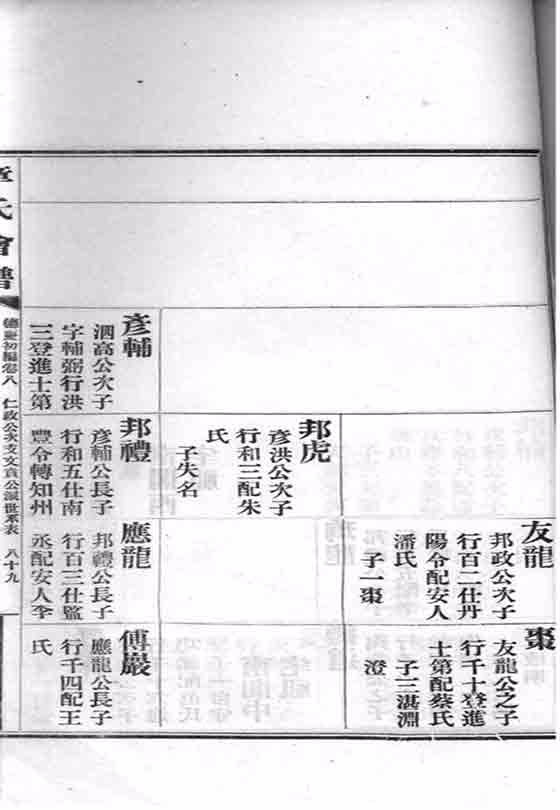 友龍
邦政公次子
行百二仕丹
陽令配安人
潘氏
子一棗
棗
友龍公之子
行千十登進
士第配蔡氏
子三湛淵
澄
邦虎
彦洪公次子
行和三配朱
氏
子失名
彦輔
泗高公次子
字輔弼行洪
三登進士第
邦禮
彦輔公長子
行和五仕南
豐令轉知州
應龍
邦禮公長子
行百三仕監
丞配安人李
氏
傅巖
應龍公長子
行千四配王
氏
章氏會譜
德慶初編卷八
仁政公次支文貢公派世系表
八十九